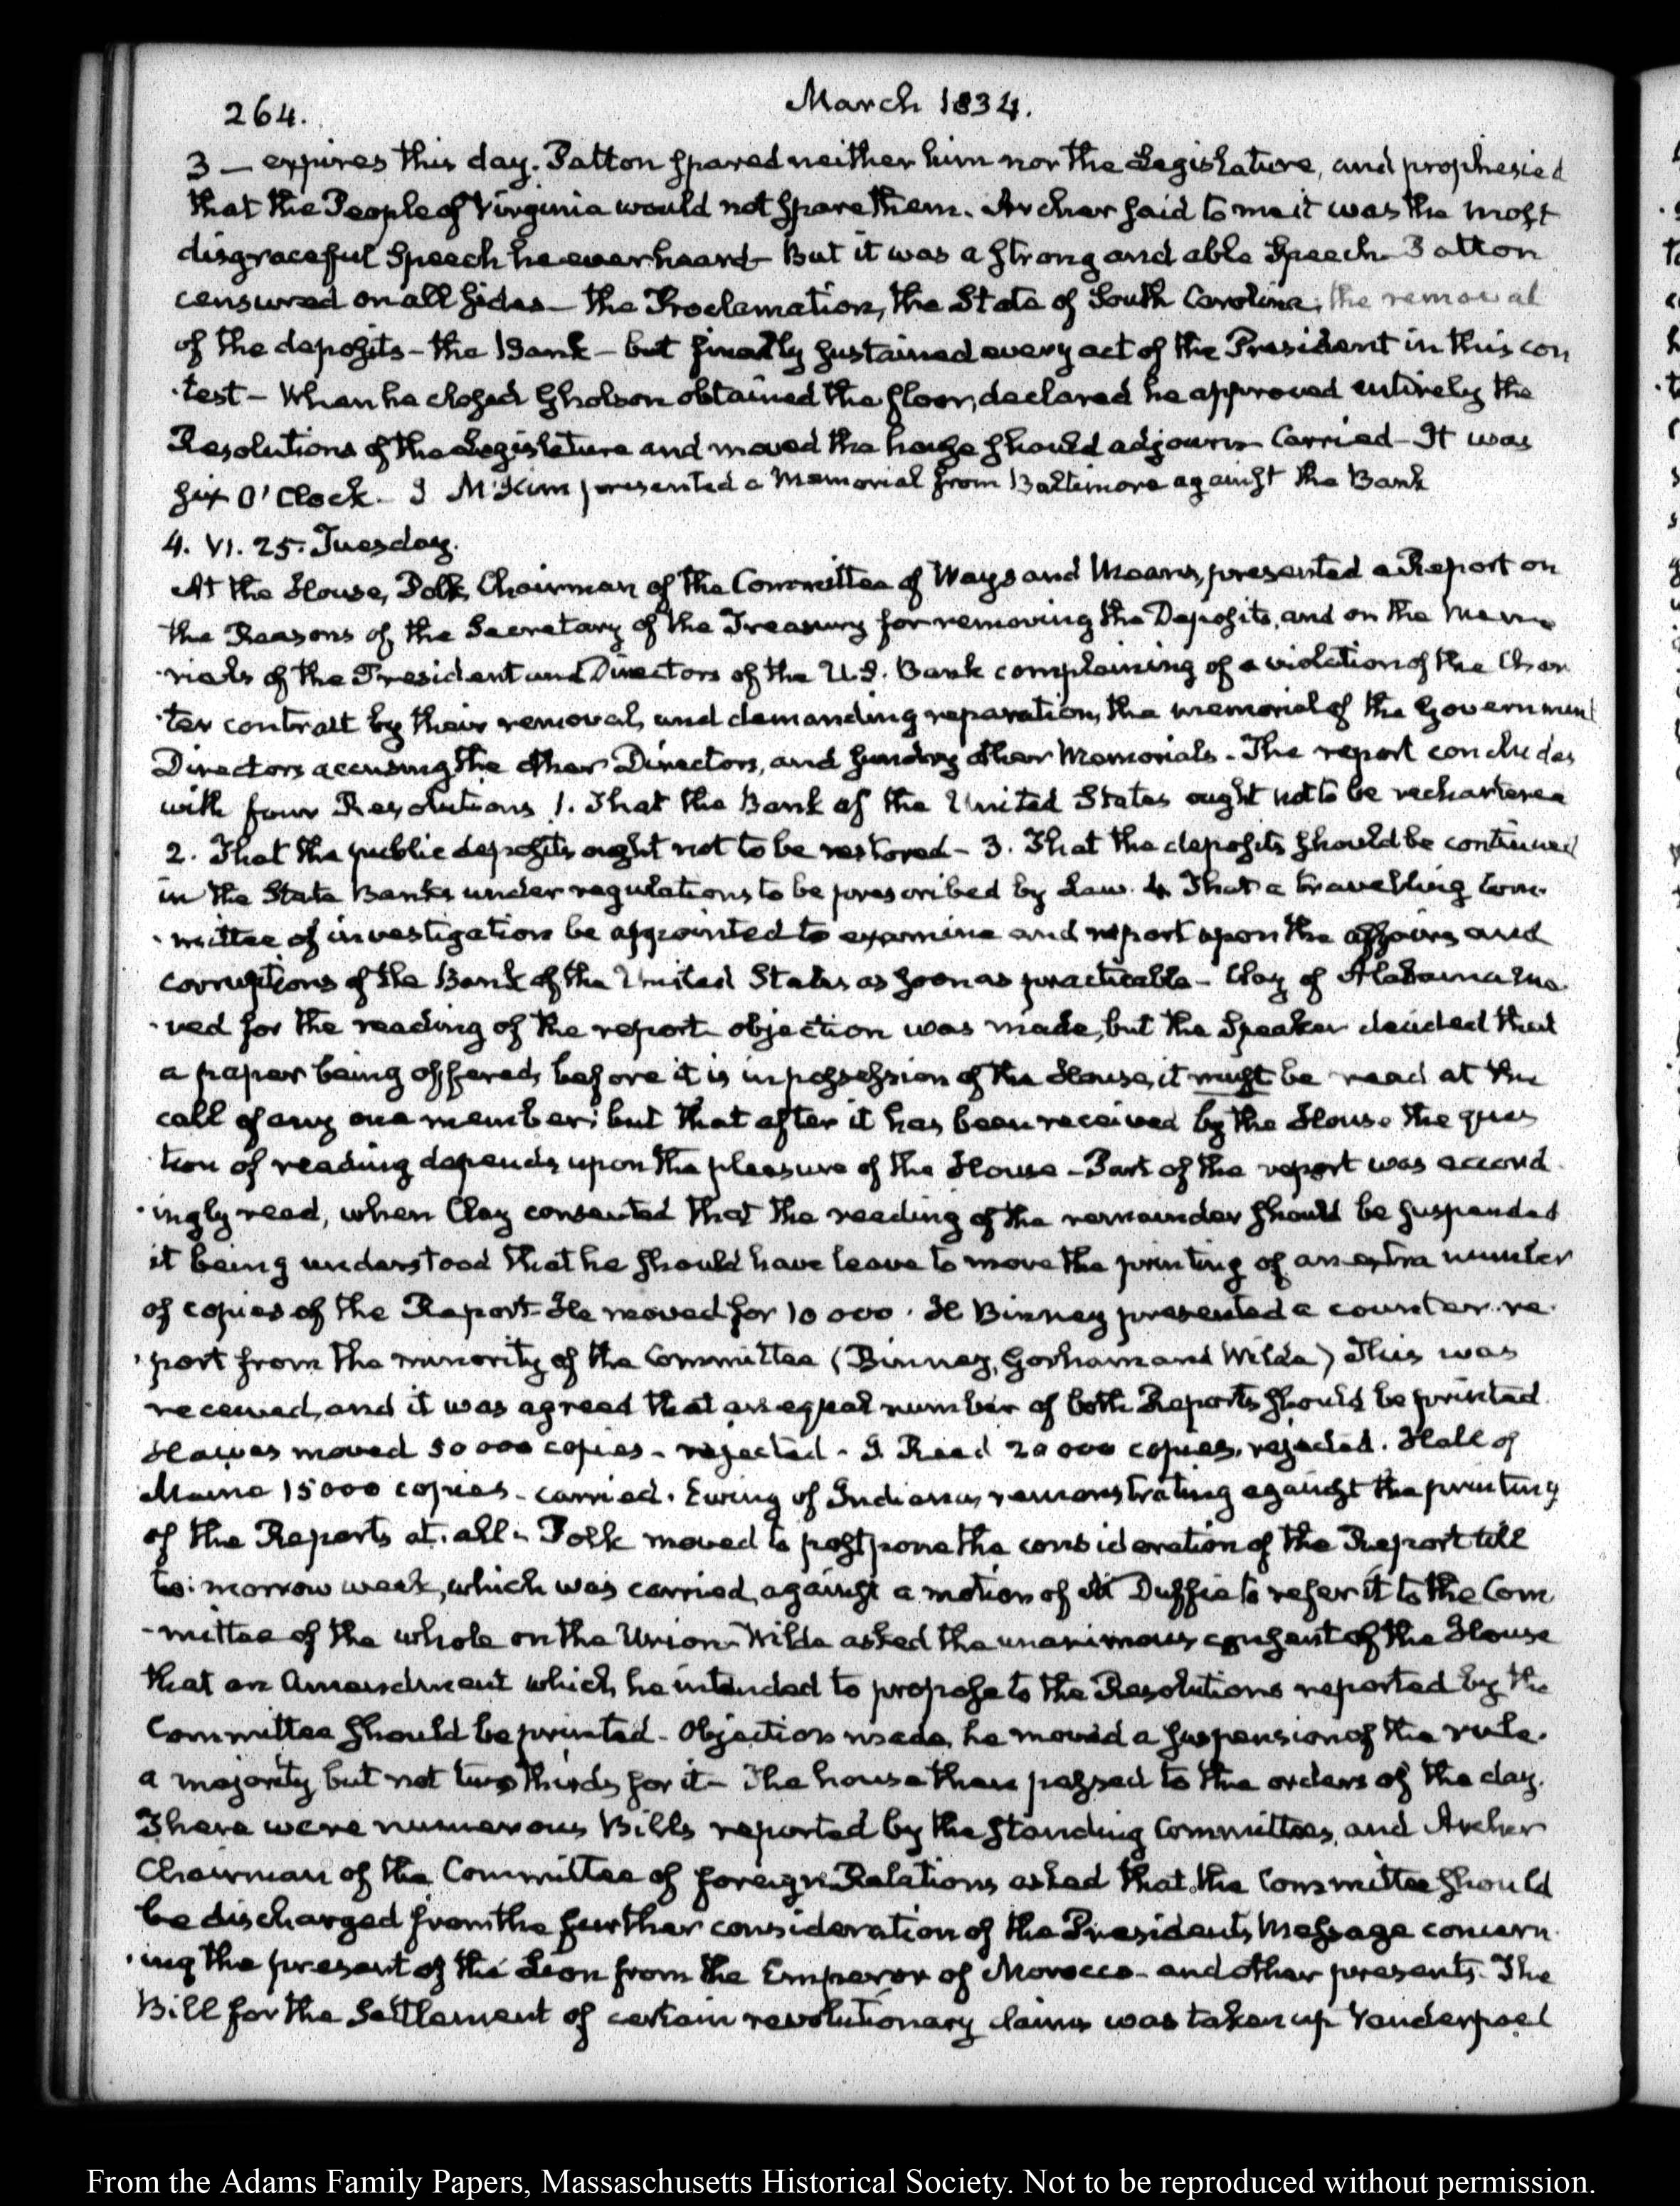 264.
March 1834.
3 — expires this day. Patton spared neither him nor the Legislature, and prophesied
that the People of Virginia would not spare them. Archer said to me it was the most
disgraceful Speech he ever heard – But it was a strong and able Speech – Patton
censured on all sides – the Proclamation, the State of South Carolina, the removal
of the deposits – the Bank – but finally sustained every act of the President in this con
·test – When he closed Gholson obtained the floor, declared he approved entirely the
Resolutions of the Legislature and moved the house should adjourn – Carried – It was
six O'Clock – I M'Kim presented a Memorial from Baltimore against the Bank
4. VI. 25. Tuesday.
At the House, Polk, Chairman of the Committee of Ways and Means, presented a Report on
the Reasons of the Secretary of the Treasury for removing the Deposits, and on the Memo
·rials of the President and Directors of the U.S. Bank complaining of a violation of the Char
·ter contract by their removal, and demanding reparation, the memorial of the Government
Directors accusing the other Directors, and sundry other Memorials. The report concludes
with four Resolutions 1. That the Bank of the United States ought not to be rechartered
2. That the public deposits ought not to be restored – 3. That the deposits should be continued
in the State Banks under regulations to be prescribed by Law. 4 That a travelling Com·
·mittee of investigation be appointed to examine and report upon the affairs and
corruptions of the Bank of the United States as soon as practicable – Clay of Alabama mo
·ved for the reading of the report – objection was made, but the Speaker decided that
a paper being offered, before it is in possession of the House, it must be read at the
call of any one member; but that after it has been received by the House the ques
·tion of reading depends upon the pleasure of the House – Part of the report was accord
·ingly read, when Clay consented that the reading of the remainder should be suspended
it being understood that he should have leave to move the printing of an extra number
of copies of the Report – He moved for 10 000. H Binney presented a counter re
·port from the minority of the Committee (Binney, Gorham and Wilde) This was
received, and it was agreed that an equal number of both Reports should be printed
Hawes moved 50 000 copies – rejected – J Reed 20 000 copies, rejected. Hall of
Maine 15 000 copies – carried. Ewing of Indiana, remonstrating against the printing
of the Reports at all – Polk moved to postpone the consideration of the Report till
to: morrow week, which was carried, against a motion of M Duffie to refer it to the Com
·mittee of the whole on the Union – Wilde asked the unanimous consent of the House
that an Amendment which he intended to propose to the Resolutions reported by the
Committee should be printed – Objection made, he moved a suspension of the rule.
a majority but not two thirds for it – The house then passed to the orders of the day.
There were numerous Bills reported by the standing Committees, and Archer
Chairman of the Committee of foreign Relations asked that the Committee should
be discharged from the further consideration of the Presidents Message concern
·ing the present of the Lion from the Emperor of Morocco – and other presents. The
Bill for the Settlement of certain revolutionary claims was taken up Vanderpoel
From the Adams Family Papers, Massachusetts Historical Society. Not to be reproduced without permission.